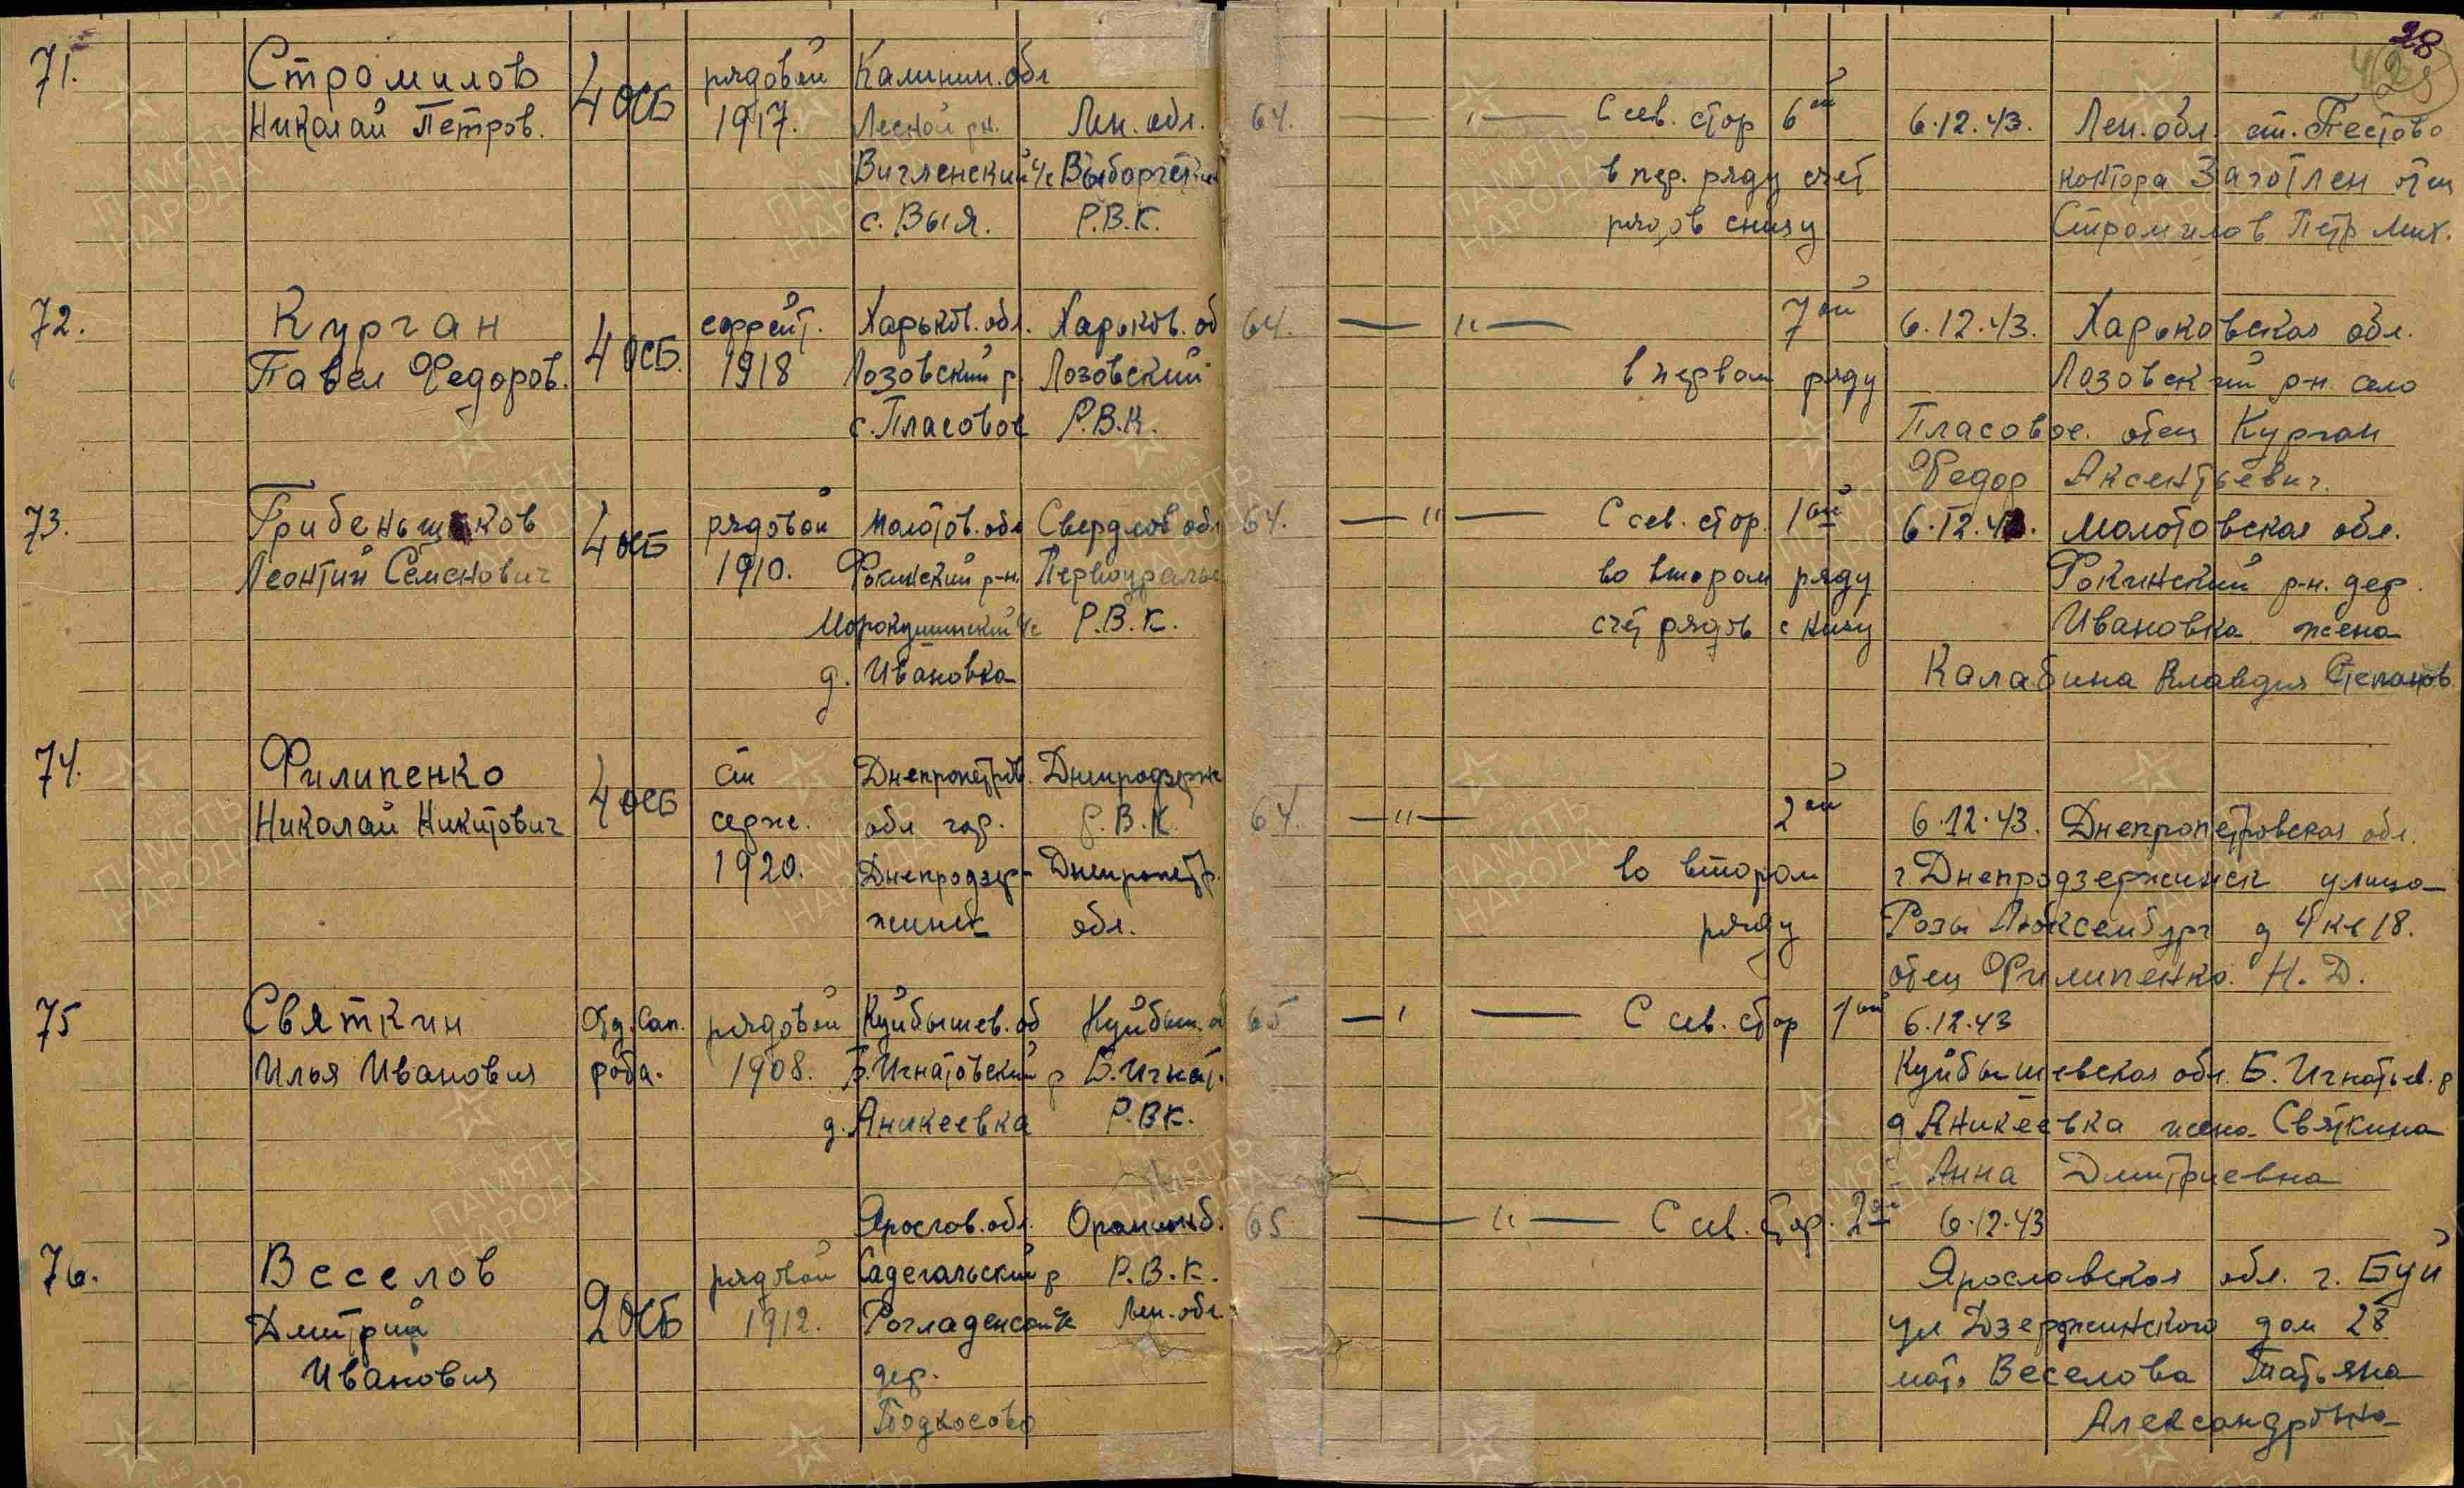 28
71. Стромилов
Николай Петров.
4 ОСБ
рядовой
1917.
Калинин. обл
Лесной рн.
с. Выя.
Лен. обл.
Выборгский
Р.В.К.
64. —"— С сев. стор 6ой
в пер. ряду счет
рядов снизу
6.12.43. Лен. обл. ст. Пестово
контора Заготлен отец
Стромилов Петр Мих.
72. Курган
Павел Федоров.
4 ОСБ.
ефрейт.
1918
Харьков. обл.
Лозовский р
с. Пласовое
Харьков. об
Лозовский
Р.В.К.
64. —"— 7ой
в первом ряду
6.12.43. Харьковская обл.
Лозовский р-н. село
Пласовое. отец Курган
Федор Аксентьевич.
73. Грибеньщиков
Леонтий Семенович
4 ОСБ
рядовой
1910.
Молотов. обл
Фокинский р-н.
д. Ивановка
Свердлов обл
Первоуральс
Р.В.К.
64. —"— С сев. стор. 1ой
во втором ряду
счет рядов снизу
6.12.43. Молотовская обл.
Фокинский р-н. дер.
Ивановка жена
Калабина Клавдия Степанов.
74. Филипенко
Николай Никитович
4 ОСБ
ст
серж.
1920.
Днепропетров.
обл гор.
Днепродзер-
жинск
Днепродзерж
Р.В.К.
Днепропетр.
обл.
64. —"— 2ой
во втором
ряду
6.12.43. Днепропетровская обл.
г. Днепродзержинск улица
Розы Люксембург д 4 кв 18.
отец Филипенко. Н. Д.
75 Святкин
Илья Иванович
Отд. Сап.
рота.
рядовой
1908.
Куйбышев. об
Б. Игнатовский р
д. Аникеевка
Куйбыш. о
Б. Игнат.
Р.ВК.
65 —"— С сев. стор 1ой
6.12.43
Куйбышевская обл. Б. Игнатьев. р
д Аникеевка жена Святкина
Анна Дмитриевна
76. Веселов
Дмитрий
Иванович
2 ОСБ
рядовой
1912.
Яросгов. обл.
дер.
Подкосово
Ораниенб.
Р.В.К.
Лен. обл.
65 —"— С сев. стор. 2ой
6.12.43
Ярославская обл. г. Буй
ул Дзержинского дом 28
мать Веселова Татьяна
Александровна